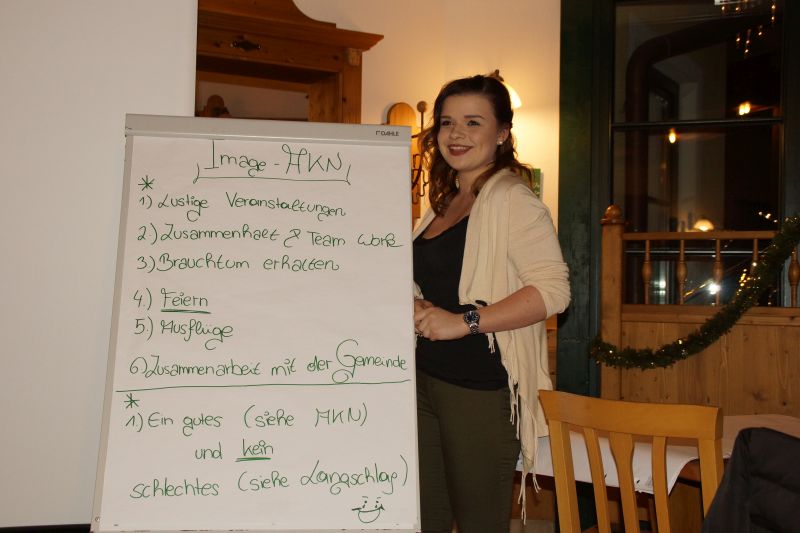 DAHLE
Image - MKN
*
1) Lustige Veranstaltungen
2.) Zusammenhalt & Team Work
3) Brauchtum erhalten
4.) Feiern
5.) Ausflüge
6) Zusammenarbeit mit der Gemeinde
*
1) Ein gutes (siehe MKN)
und kein
schlechtes (siehe Langschlag)